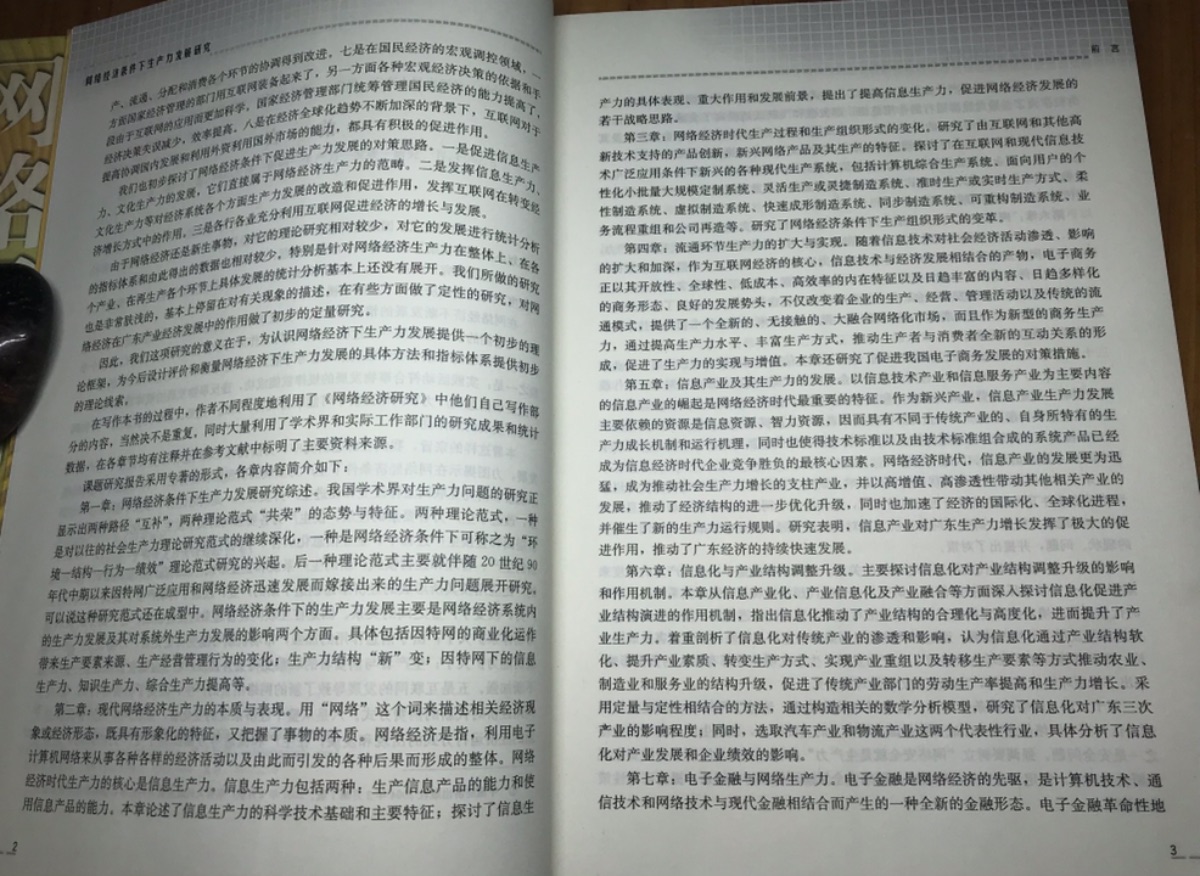 网
络
网络经济条件下生产力发展研究
产、流通、分配和消费各个环节的协调得到改进。七是在国民经济的宏观调控领域，一
方面国家经济管理的部门用互联网装备起来了，另一方面各种宏观经济决策的依据和手
段由于互联网的应用而更加科学，国家经济管理部门统筹管理国民经济的能力提高了，
经济决策失误减少，效率提高。八是在经济全球化趋势不断加深的背景下，互联网对于
提高协调国内发展和利用外资利用国外市场的能力，都具有积极的促进作用。
我们也初步探讨了网络经济条件下促进生产力发展的对策思路。一是促进信息生产
力、文化生产力的发展，它们直接属于网络经济生产力的范畴。二是发挥信息生产力、
文化生产力等对经济系统各个方面生产力发展的改造和促进作用，发挥互联网在转变经
济增长方式中的作用。三是各行各业充分利用互联网促进经济的增长与发展。
由于网络经济还是新生事物，对它的理论研究相对较少，对它的发展进行统计分析
的指标体系和由此得出的数据也相对较少。特别是针对网络经济生产力在整体上、在各
个产业、在再生产各个环节上具体发展的统计分析基本上还没有展开。我们所做的研究
也是非常肤浅的，基本上停留在对有关现象的描述，在有些方面做了定性的研究，对网
络经济在广东产业经济发展中的作用做了初步的定量研究。
因此，我们这项研究的意义在于，为认识网络经济下生产力发展提供一个初步的理
论框架，为今后设计评价和衡量网络经济下生产力发展的具体方法和指标体系提供初步
的理论线索。
在写作本书的过程中，作者不同程度地利用了《网络经济研究》中他们自己写作部
分的内容，当然决不是重复。同时大量利用了学术界和实际工作部门的研究成果和统计
数据，在各章节均有注释并在参考文献中标明了主要资料来源。
课题研究报告采用专著的形式，各章内容简介如下：
第一章：网络经济条件下生产力发展研究综述。我国学术界对生产力问题的研究正
显示出两种路径“互补”，两种理论范式“共荣”的态势与特征。两种理论范式，一种
是对以往的社会生产力理论研究范式的继续深化，一种是网络经济条件下可称之为“环
境一结构一行为一绩效”理论范式研究的兴起。后一种理论范式主要就伴随 20 世纪 90
年代中期以来因特网广泛应用和网络经济迅速发展而嫁接出来的生产力问题展开研究。
可以说这种研究范式还在成型中。网络经济条件下的生产力发展主要是网络经济系统内
的生产力发展及其对系统外生产力发展的影响两个方面。具体包括因特网的商业化运作
带来生产要素来源、生产经营管理行为的变化；生产力结构“新”变；因特网下的信息
生产力、知识生产力、综合生产力提高等。
第二章：现代网络经济生产力的本质与表现。用“网络”这个词来描述相关经济现
象或经济形态，既具有形象化的特征，又把握了事物的本质。网络经济是指，利用电子
计算机网络来从事各种各样的经济活动以及由此而引发的各种后果而形成的整体。网络
经济时代生产力的核心是信息生产力。信息生产力包括两种：生产信息产品的能力和使
用信息产品的能力。本章论述了信息生产力的科学技术基础和主要特征；探讨了信息生
2
前 言
产力的具体表现、重大作用和发展前景，提出了提高信息生产力，促进网络经济发展的
若干战略思路。
第三章：网络经济时代生产过程和生产组织形式的变化。研究了由互联网和其他高
新技术支持的产品创新，新兴网络产品及其生产的特征。探讨了在互联网和现代信息技
术广泛应用条件下新兴的各种现代生产系统，包括计算机综合生产系统、面向用户的个
性化小批量大规模定制系统、灵活生产或灵捷制造系统、准时生产或实时生产方式、柔
性制造系统、虚拟制造系统、快速成形制造系统、同步制造系统、可重构制造系统、业
务流程重组和公司再造等。研究了网络经济条件下生产组织形式的变革。
第四章：流通环节生产力的扩大与实现。随着信息技术对社会经济活动渗透、影响
的扩大和加深，作为互联网经济的核心，信息技术与经济发展相结合的产物，电子商务
正以其开放性、全球性、低成本、高效率的内在特征以及日趋丰富的内容、日趋多样化
的商务形态、良好的发展势头，不仅改变着企业的生产、经营、管理活动以及传统的流
通模式，提供了一个全新的、无接触的、大融合网络化市场，而且作为新型的商务生产
力，通过提高生产力水平、丰富生产方式，推动生产者与消费者全新的互动关系的形
成，促进了生产力的实现与增值。本章还研究了促进我国电子商务发展的对策措施。
第五章：信息产业及其生产力的发展。以信息技术产业和信息服务产业为主要内容
的信息产业的崛起是网络经济时代最重要的特征。作为新兴产业，信息产业生产力发展
主要依赖的资源是信息资源、智力资源，因而具有不同于传统产业的、自身所特有的生
产力成长机制和运行机理，同时也使得技术标准以及由技术标准组合成的系统产品已经
成为信息经济时代企业竞争胜负的最核心因素。网络经济时代，信息产业的发展更为迅
猛，成为推动社会生产力增长的支柱产业，并以高增值、高渗透性带动其他相关产业的
发展，推动了经济结构的进一步优化升级，同时也加速了经济的国际化、全球化进程，
并催生了新的生产力运行规则。研究表明，信息产业对广东生产力增长发挥了极大的促
进作用，推动了广东经济的持续快速发展。
第六章：信息化与产业结构调整升级。主要探讨信息化对产业结构调整升级的影响
和作用机制。本章从信息产业化、产业信息化及产业融合等方面深入探讨信息化促进产
业结构演进的作用机制，指出信息化推动了产业结构的合理化与高度化，进而提升了产
业生产力。着重剖析了信息化对传统产业的渗透和影响，认为信息化通过产业结构软
化、提升产业素质、转变生产方式、实现产业重组以及转移生产要素等方式推动农业、
制造业和服务业的结构升级，促进了传统产业部门的劳动生产率提高和生产力增长。采
用定量与定性相结合的方法，通过构造相关的数学分析模型，研究了信息化对广东三次
产业的影响程度；同时，选取汽车产业和物流产业这两个代表性行业，具体分析了信息
化对产业发展和企业绩效的影响。
第七章：电子金融与网络生产力。电子金融是网络经济的先驱，是计算机技术、通
信技术和网络技术与现代金融相结合而产生的一种全新的金融形态。电子金融革命性地
3